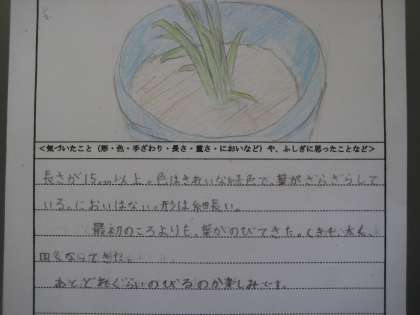 <気づいたこと（形・色・手ざわり・長さ・重さ・においなど）や、ふしぎに思ったことなど>
長さが15cm以上。色はきれいな緑色で。葉がざらざらして
いる。においはない。形は細長い。
最初のころよりも、葉がのびてきた。くきも、太く、
なってきた。
あと、どれぐらいのびるのか楽しみです。